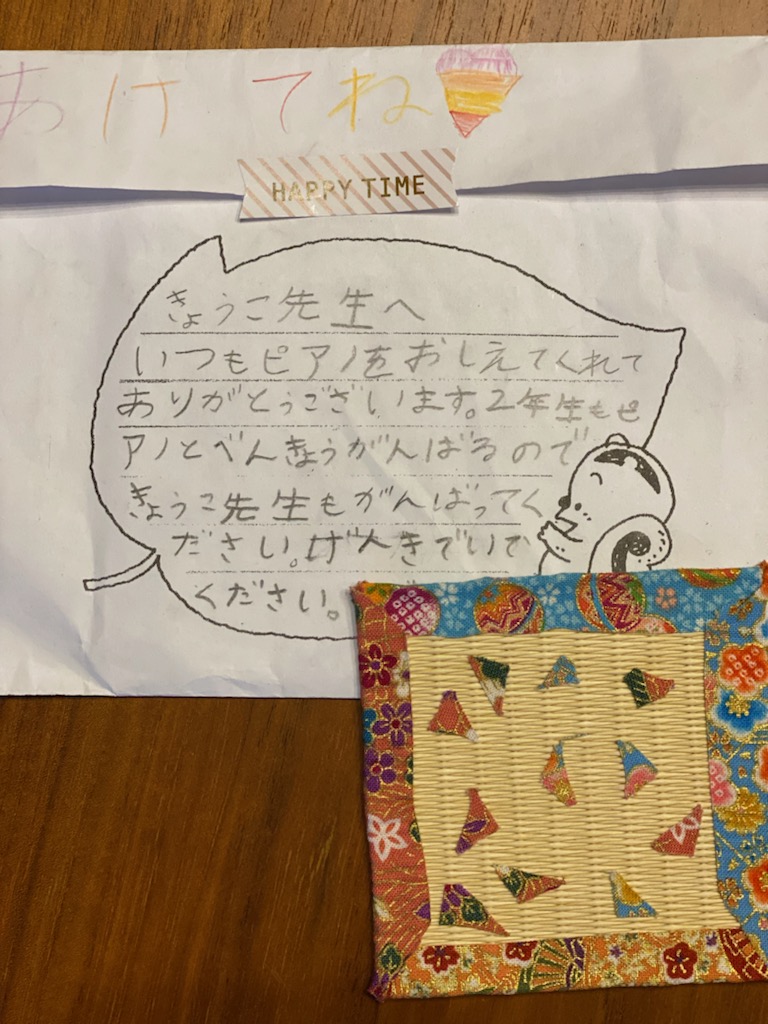 あけてね
HAPPY TIME
きょうこ先生へ
いつもピアノをおしえてくれて
ありがとうございます。2年生もピ
アノとべんきょうがんばるので
きょうこ先生もがんばってく
ださい。げんきでいて
ください。